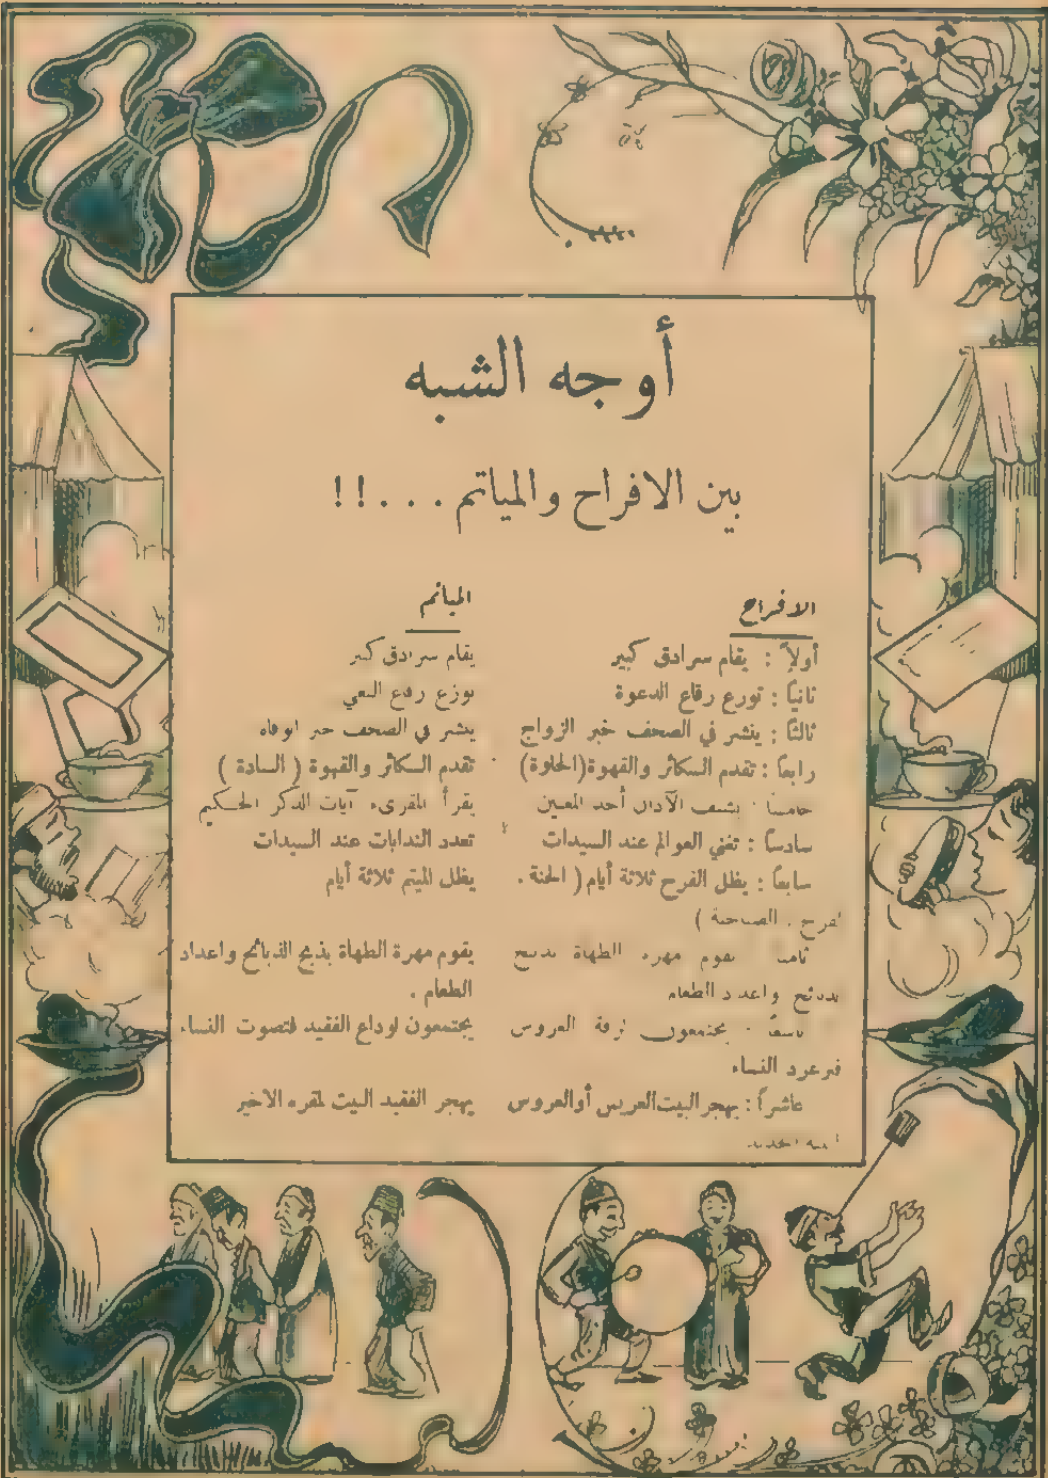 أوجه الشبه
بين الافراح والمياتم . . . !!
الافراح
أولاً : يقام سرادق كبير
ثانياً : توزع رقاع الدعوة
ثالثاً : ينشر في الصحف خبر الزواج
رابعاً : تقدم السكائر والقهوة (الحلوة)
خامساً : تشنف الآذان أحد المغنين
سادساً : تغني العوالم عند السيدات
سابعاً : يظل الفرح ثلاثة أيام ( الحنة .
الفرح . الصباحية )
ثامناً : يقوم مهرة الطهاة بذبح
الذبائح واعداد الطعام
تاسعاً : يجتمعون لزفة العروس
فتزغرد النساء
عاشراً : يهجر البيت العريس أو العروس
المياتم
يقام سرادق كبير
توزع رقاع النعي
ينشر في الصحف خبر الوفاه
تقدم السكائر والقهوة ( السادة )
يقرأ المقرىء آيات الذكر الحكيم
تعدد الندابات عند السيدات
يظل الميتم ثلاثة أيام
يقوم مهرة الطهاة بذبح الذبائح واعداد
الطعام .
يجتمعون لوداع الفقيد فتصوت النساء
يهجر الفقيد البيت لمقره الاخير